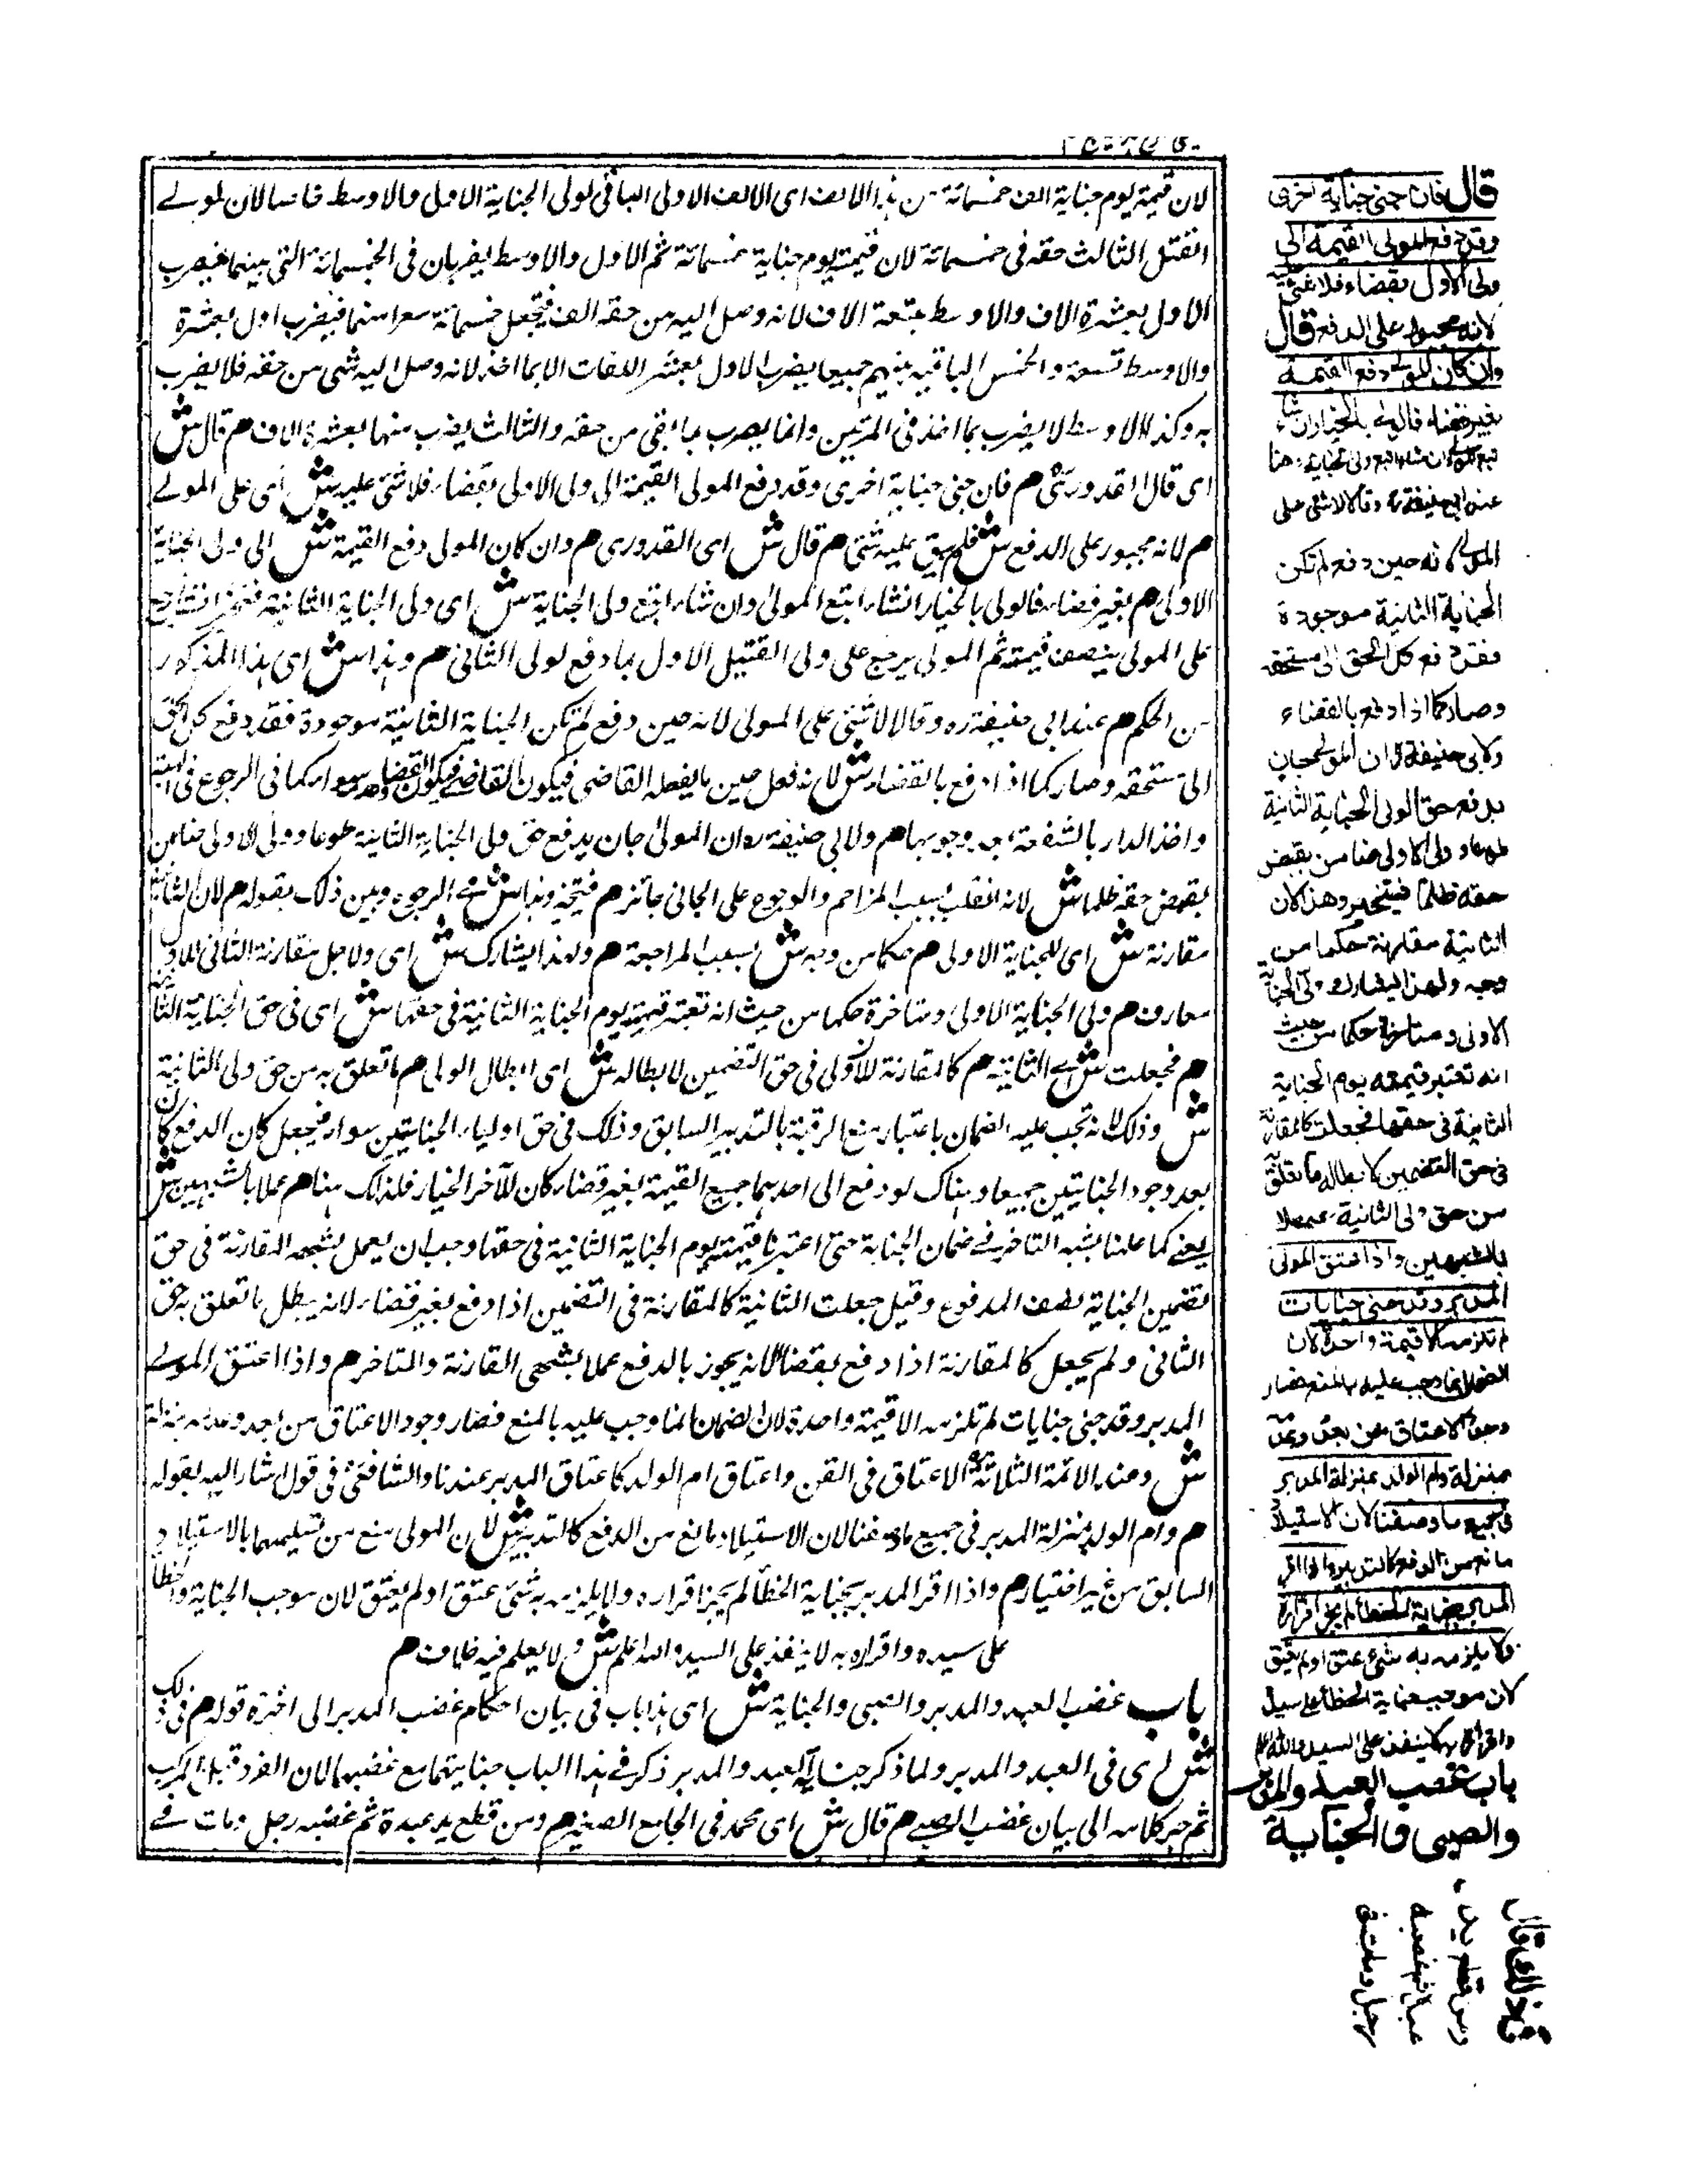 لان قيمته يوم جناية الف خمسمائة من هذا الالف اى الالف الاولى الباقى لولى الجناية الاولى والاوسط خاصا لان لمولى
القتيل الثالث حقه فى خمسمائة لان قيمته يوم جناية خمسمائة ثم الاول والاوسط يضربان فى الخمسمائة التى بينهما فيضرب
الاول بعشرة الاف والاوسط بتسعة الاف لانه وصل اليه من حقه الف فيجعل خمسمائة بينهما فيضرب اول بعشرة
والاوسط تسعة والخمس الباقية بينهم جميعا يضرب الاول بعشرة الاف الا بما اخذ لانه وصل اليه شى من حقه فلا يضرب
به وكذا الاوسط لا يضرب بما اخذ فى المرتين وانما يضرب بما بقى من حقه والثالث يضرب منها بعشرة الاف هم قال ش
اى قال القدورى هم فان جنى جناية اخرى وقد دفع المولى القيمة الى ولى الاولى بقضاء فلا شئ عليه ش اى على المولى
هم لانه مجبور على الدفع ش فلم يبق عليه شئ هم قال ش اى القدورى هم وان كان المولى دفع القيمة ش الى ولى الجناية
الاولى هم بغير قضاء فالولى بالخيار ان شاء اتبع المولى وان شاء اتبع ولى الجناية ش اى ولى الجناية الثانية
على المولى بنصف قيمته ثم المولى يرجع على ولى القتيل الاول بما دفع لولى الثانى هم وهذا ش اى هذا المذكور
من الحكم هم عند ابى حنيفة ره وقالا لا شئ على المولى لانه حين دفع لم تكن الجناية الثانية موجودة فقد دفع كل الحق
الى مستحقه وصار كما اذا دفع بالقضاء ش لانه فعل عين ما يفعله القاضى فيكون القضاء وعدمه سواء كما فى الرجوع فى الهبة
واخذ الدار بالشفعة بعد وجوبها هم ولابى حنيفة ره ان المولى جان بدفع حق ولى الجناية الثانية طوعا وولى الاولى ضامن
بقبض حقه ظلما ش لانه انقلب بسبب المزاحم والرجوع على الجانى جائز هم فيتخير وهذا ش اى الرجوع وبين ذلك بقوله هم لان الثانية
مقارنة ش اى للجناية الاولى هم حكما من وجه ش بسبب المراجعة هم ولهذا يشارك ش اى ولاجل مقارنة الثانى للاول
هم ولى الجناية الاولى ومتاخرة حكما من حيث انه تعتبر قيمته يوم الجناية الثانية فى حقها ش اى فى حق الجناية الثانية
هم فجعلت ش اى الثانية هم كالمقارنة للاولى فى حق التضمين لابطاله ش اى ابطال الولى هم ما تعلق به من حق ولى الثانية
ش وذلك لانه تجب عليه الضمان باعتبار منع الرقبة بالتدبير السابق وذلك فى حق اولياء الجنايتين سواء فيجعل كان الدفع كان
بعد وجود الجنايتين جميعا وهناك لو دفع الى احدهما جميع القيمة بغير قضاء كان للآخر الخيار فلذلك هنا هم عملا بالشبهين ش
يعنى كما علمنا بشبه التاخر فى ضمان الجناية حتى اعتبرنا قيمته يوم الجناية الثانية فى حقها وجب ان يعمل بشبه المقارنة فى حق
تضمين الجناية نصف المدفوع وقيل جعلت الثانية كالمقارنة فى التضمين اذا دفع بغير قضاء لانه يبطل ما تعلق به حق
الثانى ولم يجعل كالمقارنة اذا دفع بقضاء لانه يجوز بالدفع عملا بشبهى المقارنة والتاخر هم واذا اعتق المولى
المدبر وقد جنى جنايات لم تلزمه الا قيمة واحدة لان الضمان انما وجب عليه بالمنع فصار وجود الاعتاق من بعد وعدمه بمنزلة
ش وعند الائمة الثلاثة الاعتاق فى القن واعتاق ام الولد كاعتاق المدبر عندنا والشافعى فى قول اشار اليه بقوله
هم وام الولد بمنزلة المدبر فى جميع ما وصفنا لان الاستيلاد مانع من الدفع كالتدبير ش لان المولى منع من تسليمهما بالاستيلاد
السابق من غير اختيار هم واذا اقر المدبر بجناية الخطأ لم يجز اقراره ولا يلزمه به شئ عتق او لم يعتق لان موجب الجناية والخطا
على سيده واقراره به لا ينفذ على السيد والله اعلم ش ولا يعلم فيه خلاف هم
باب غصب العبد والمدبر والصبى والجناية ش اى هذا باب فى بيان احكام غصب المدبر الى اخره قوله هم فى ذلك
ش اى فى العبد والمدبر ولما ذكر جناية العبد والمدبر ذكر فى هذا الباب جنايتهما مع غصبهما لان الفرد قبل المركب
ثم جر كلامه الى بيان غصب الصبى هم قال ش اى محمد فى الجامع الصغير هم ومن قطع يد عبده ثم غصبه رجل ومات فى
قال فان جنى جناية اخرى
وقد دفع المولى القيمة الى
ولى الاول بقضاء فلا شئ عليه
لانه مجبور على الدفع قال
وان كان المولى دفع القيمة
بغير قضاء فالولى بالخيار ان شاء
اتبع المولى وان شاء اتبع ولى الجناية وهذا
عند ابى حنيفة ره وقالا لا شئ على
المولى لانه حين دفع لم تكن
الجناية الثانية موجودة
فقد دفع كل الحق الى مستحقه
وصار كما اذا دفع بالقضاء
ولابى حنيفة ره ان المولى جان
بدفع حق الولى الجناية الثانية
طوعا وولى الاولى ضامن بقبض
حقه ظلما فيتخير وهذا لان
الثانية مقارنة حكما من
وجه ولهذا يشارك ولى الجناية
الاولى ومتاخرة حكما من حيث
انه تعتبر قيمته يوم الجناية
الثانية فى حقها فجعلت كالمقارنة
فى حق التضمين لابطاله ما تعلق به
من حق ولى الثانية عملا
بالشبهين واذا اعتق المولى
المدبر وقد جنى جنايات
لم تلزمه الا قيمة واحدة لان
الضمان انما وجب عليه بالمنع فصار
وجود الاعتاق من بعد وعدمه
بمنزلة وام الولد بمنزلة المدبر
فى جميع ما وصفنا لان الاستيلاد
مانع من الدفع كالتدبير واذا اقر
المدبر بجناية الخطأ لم يجز اقراره
ولا يلزمه به شئ عتق او لم يعتق
لان موجب جناية الخطأ على سيده
واقراره به لا ينفذ على السيد والله اعلم
باب غصب العبد والمدبر
والصبى والجناية
قال
ومن قطع يد
عبده ثم غصبه
رجل ومات فى